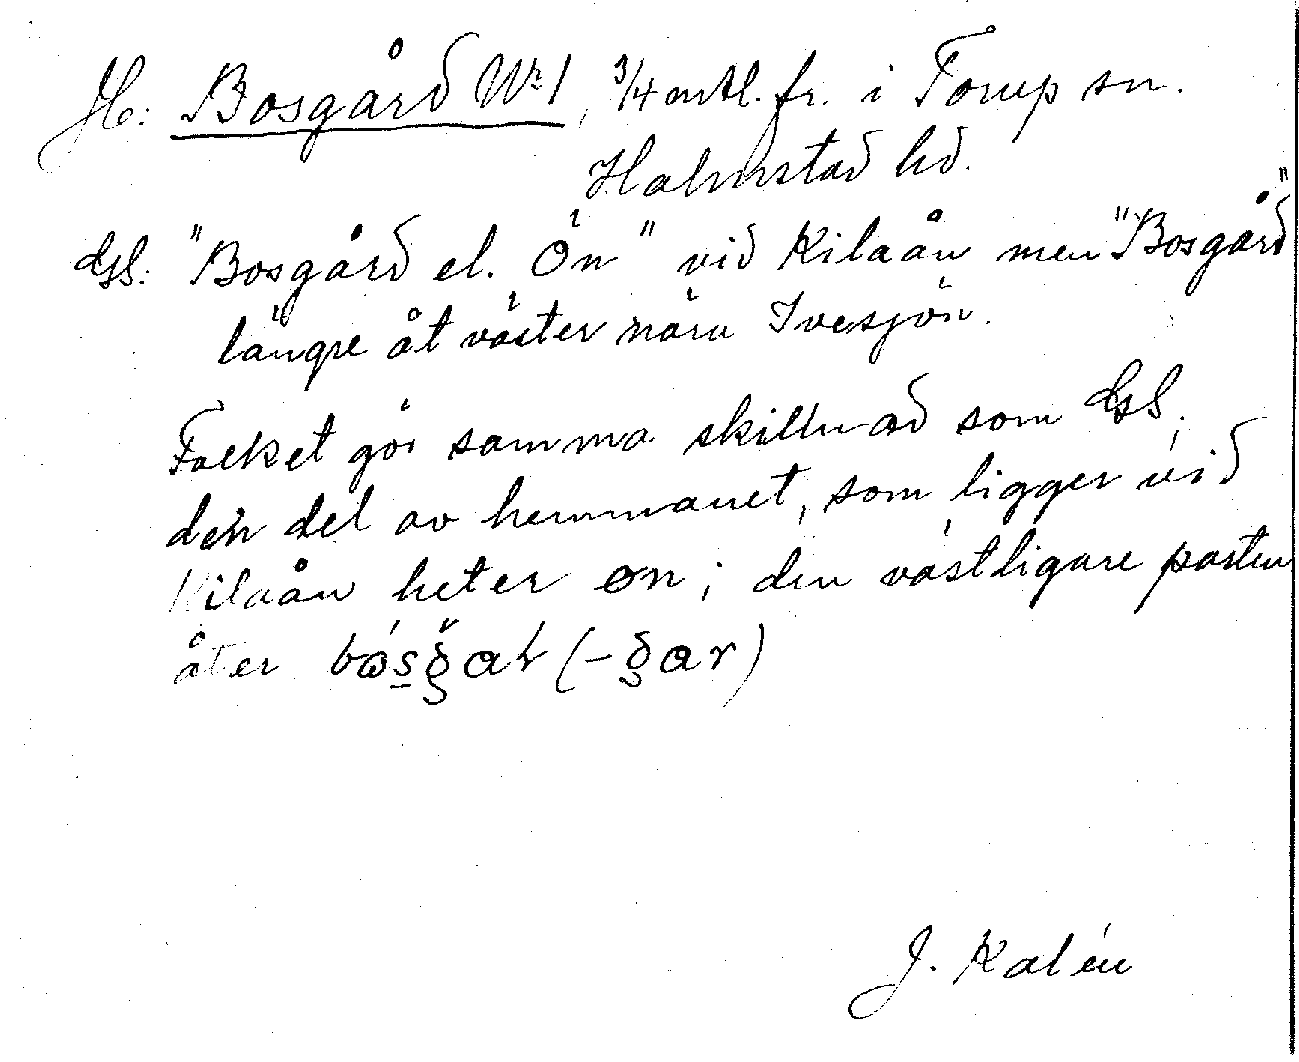 H: Bosgård Nr 1, 3/4 mtl. fr. i Torup sn.
Halmstad hd.
GS: "Bosgård el. Ön" vid Kilaån men "Bosgård"
längre åt väster nära Ivesjön.
Folket gör samma skillnad som GS;
den del av hemmanet, som ligger vid
Kilaån heter ön; den västligare parten
åter
J. Kalén